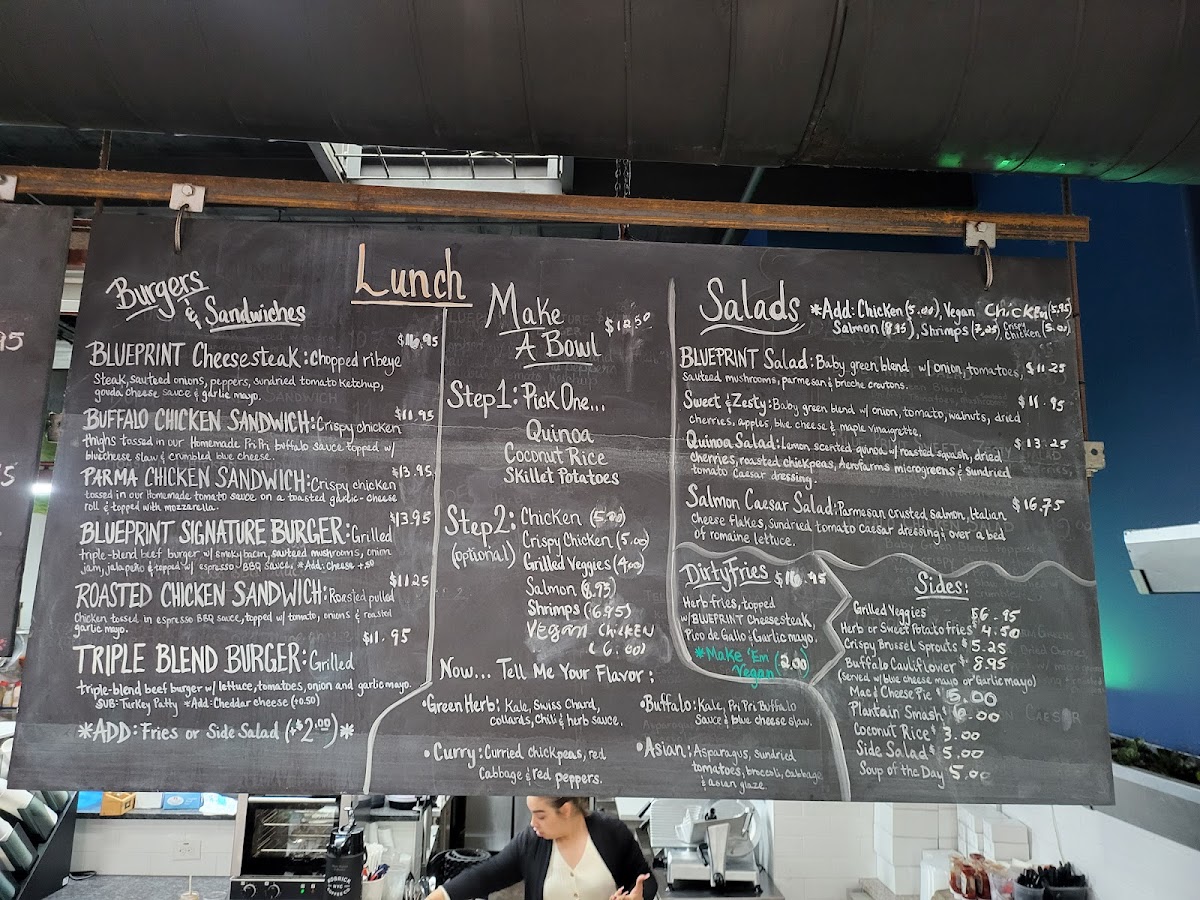 Lunch
Burgers
& Sandwiches
BLUEPRINT Cheesesteak: Chopped ribeye
Steak, sauteed onions, peppers, sundried tomato Ketchup,
gouda cheese sauce & garlic mayo.
BUFFALO CHICKEN SANDWICH: Crispy chicken $11.95
thighs tossed in our Homemade Pri Pri buffalo sauce topped w/
bluecheese slaw & crumbled blue cheese.
PARMA CHICKEN SANDWICH: Crispy chicken $13.95
tossed in our Homemade tomato sauce on a toasted garlic-cheese
roll & topped with mozzarella.
BLUEPRINT SIGNATURE BURGER: Grilled $13.95
triple-blend beef burger w/ smoky bacon, sauteed mushrooms, onion
jam, jalapeño & topped w/ espresso BBQ sauce, *Add: Cheese +.50
ROASTED CHICKEN SANDWICH: Roasted pulled $11.25
Chicken tossed in espresso BBQ sauce, topped w/ tomato, onions & roasted
garlic mayo.
TRIPLE BLEND BURGER: Grilled $11.95
triple-blend beef burger w/ lettuce, tomatoes, onion and garlic mayo.
SUB: Turkey Patty *Add: Cheddar cheese (+0.50)
*ADD: Fries or Side Salad (+$2.00)*
Make
A Bowl
Step 1: Pick One...
Quinoa
Coconut Rice
Skillet Potatoes
Step 2: Chicken (5.00)
(optional) Crispy Chicken (5.00)
Grilled Veggies (4.00)
Salmon (8.95)
Shrimps (6.95)
Vegan Chicken
(6.00)
Now... Tell Me Your Flavor:
•Green Herb: Kale, Swiss Chard,
collards, Chili & herb sauce.
•Buffalo: Kale, Pri Pri Buffalo
Sauce & blue cheese slaw.
•Curry: Curried chickpeas, red
Cabbage & red peppers.
•Asian: Asparagus, sundried
tomatoes, broccoli, cabbage
& asian glaze.
Salads *Add: Chicken (5.00), Vegan Chicken (5.95)
Salmon (8.95), Shrimps (7.25), Crispy Chicken (5.00)
BLUEPRINT Salad: Baby green blend w/ onion, tomatoes, $11.25
Sauteed mushrooms, parmesan & brioche croutons.
Sweet & Zesty: Baby green blend w/ onion, tomato, walnuts, dried $11.95
cherries, apples, blue cheese & maple vinaigrette.
Quinoa Salad: Lemon scented quinoa w/ roasted squash, dried $13.25
cherries, roasted chickpeas, Aerofarms microgreens & sundried
tomato Caesar dressing.
Salmon Caesar Salad: Parmesan crusted salmon, Italian $16.75
Cheese flakes, sundried tomato caesar dressing & over a bed
of romaine lettuce.
Dirty Fries
Herb fries, topped
w/ BLUEPRINT Cheesesteak,
Pico de Gallo & Garlic mayo.
*Make 'Em
Vegan (2.00)
Sides:
Grilled Veggies $6.95
Herb or Sweet Potato fries $4.50
Crispy Brussel Sprouts $5.25
Buffalo Cauliflower $8.95
(Served w/ blue cheese mayo or Garlic mayo)
Mac & Cheese Pie $5.00
Plantain Smash
Coconut Rice $3.00
Side Salad $5.00
Soup of the Day 5.00